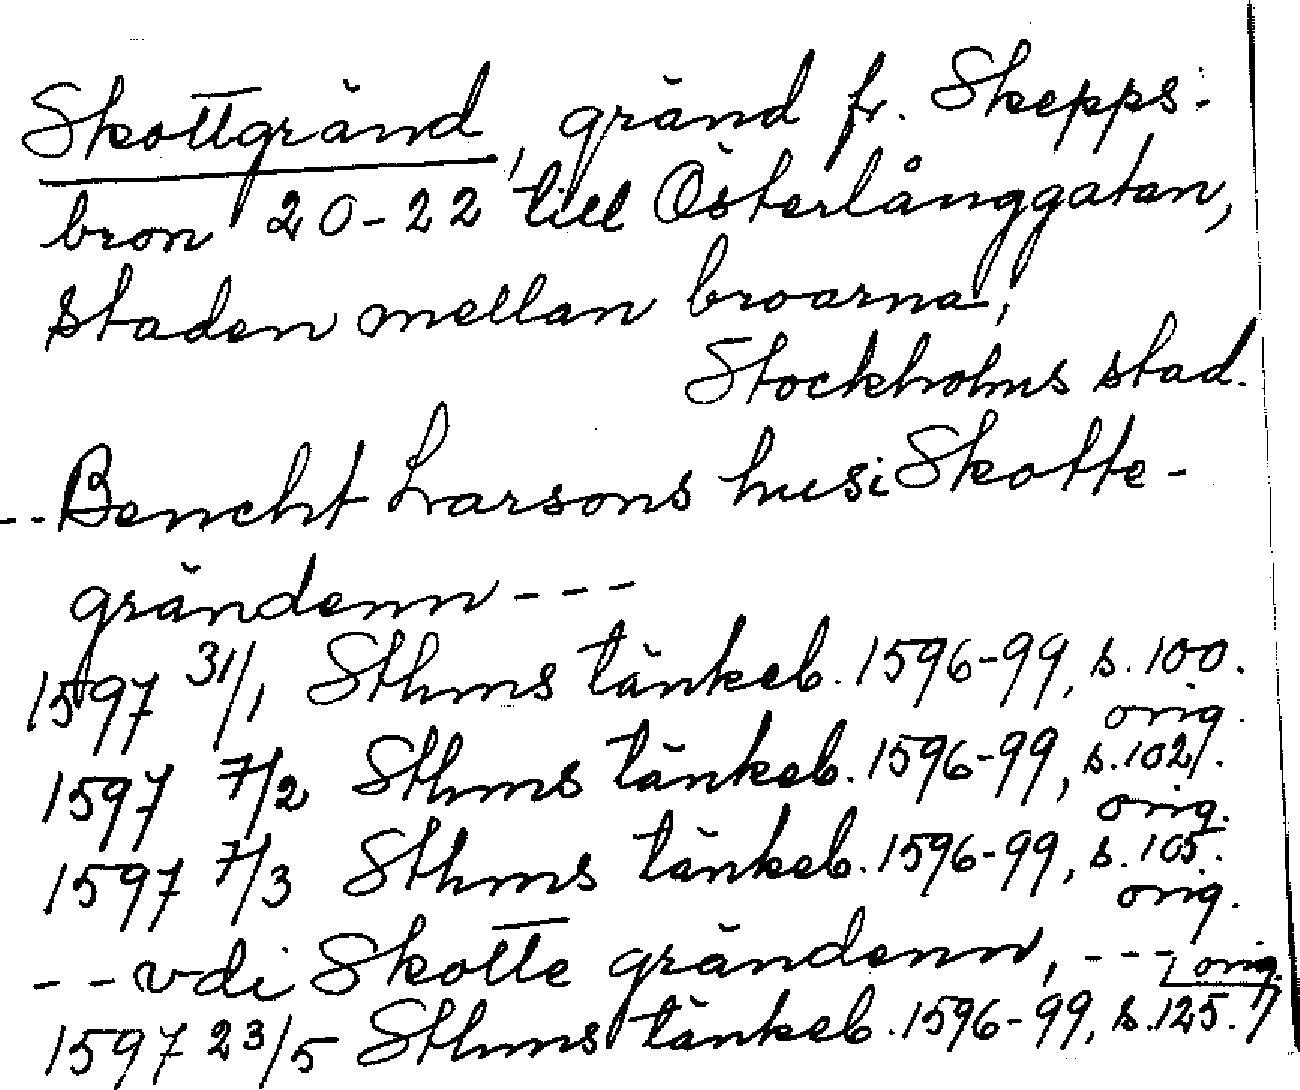 Skottgränd, gränd fr. Skepps-
bron 20-22 till Österlånggatan,
staden mellan broarna,
Stockholms stad.
--Bencht Larsons hus i Skotte-
grändenn ---
1597 31/1 Sthms tänkeb. 1596-99, s. 100.
orig.
1597 7/2 Sthms tänkeb. 1596-99, s. 102.
orig.
1597 7/3 Sthms tänkeb. 1596-99, s. 105.
orig.
--vdi Skotte grändenn, ---
orig.
1597 23/5 Sthms tänkeb. 1596-99, s. 125.